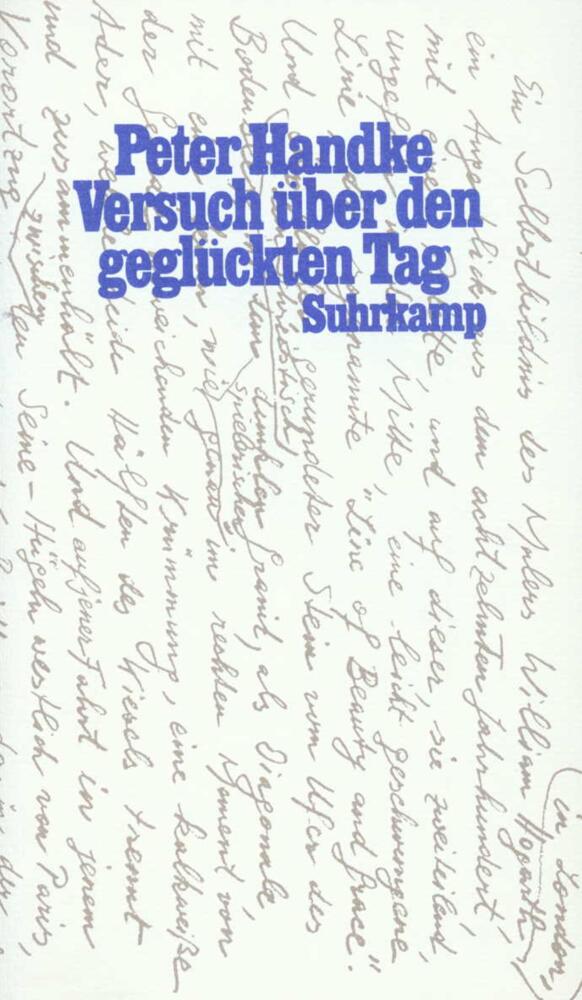 Peter Handke
Versuch über den
geglückten Tag
Suhrkamp
in London,
Ein Selbstbildnis des Malers William Hogarth
ein Augenblick aus dem achtzehnten Jahrhundert,
mit Palette, und auf dieser, sie zweiteilend,
ungefähr Mitte, eine leicht geschwungene
Linie sogenannte „Line of Beauty and Grace“.
Und gerundeter Stein vom Ufer des
Bodensees dunkler Granit, als Diagonale,
mit wie genau im rechten Moment von
der Geraden abweichenden Krümmung, eine kalkweiße
Ader, welche beide Hälften des Kiesels trennt
und zusammenhält. Und auf jener Fahrt in jenem
Vorortzug zwischen den Seine-Hügeln westlich von Paris,